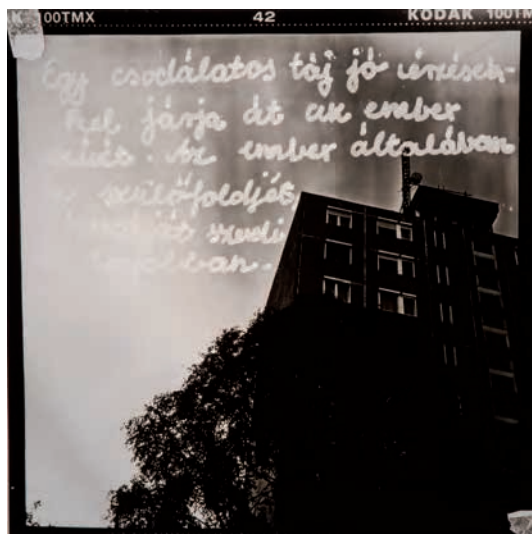 K 100TMX 42 KODAK 100TM
Egy csodálatos táj jó érzések-
kel járja át az ember
Az ember általában
szülőföldjét,